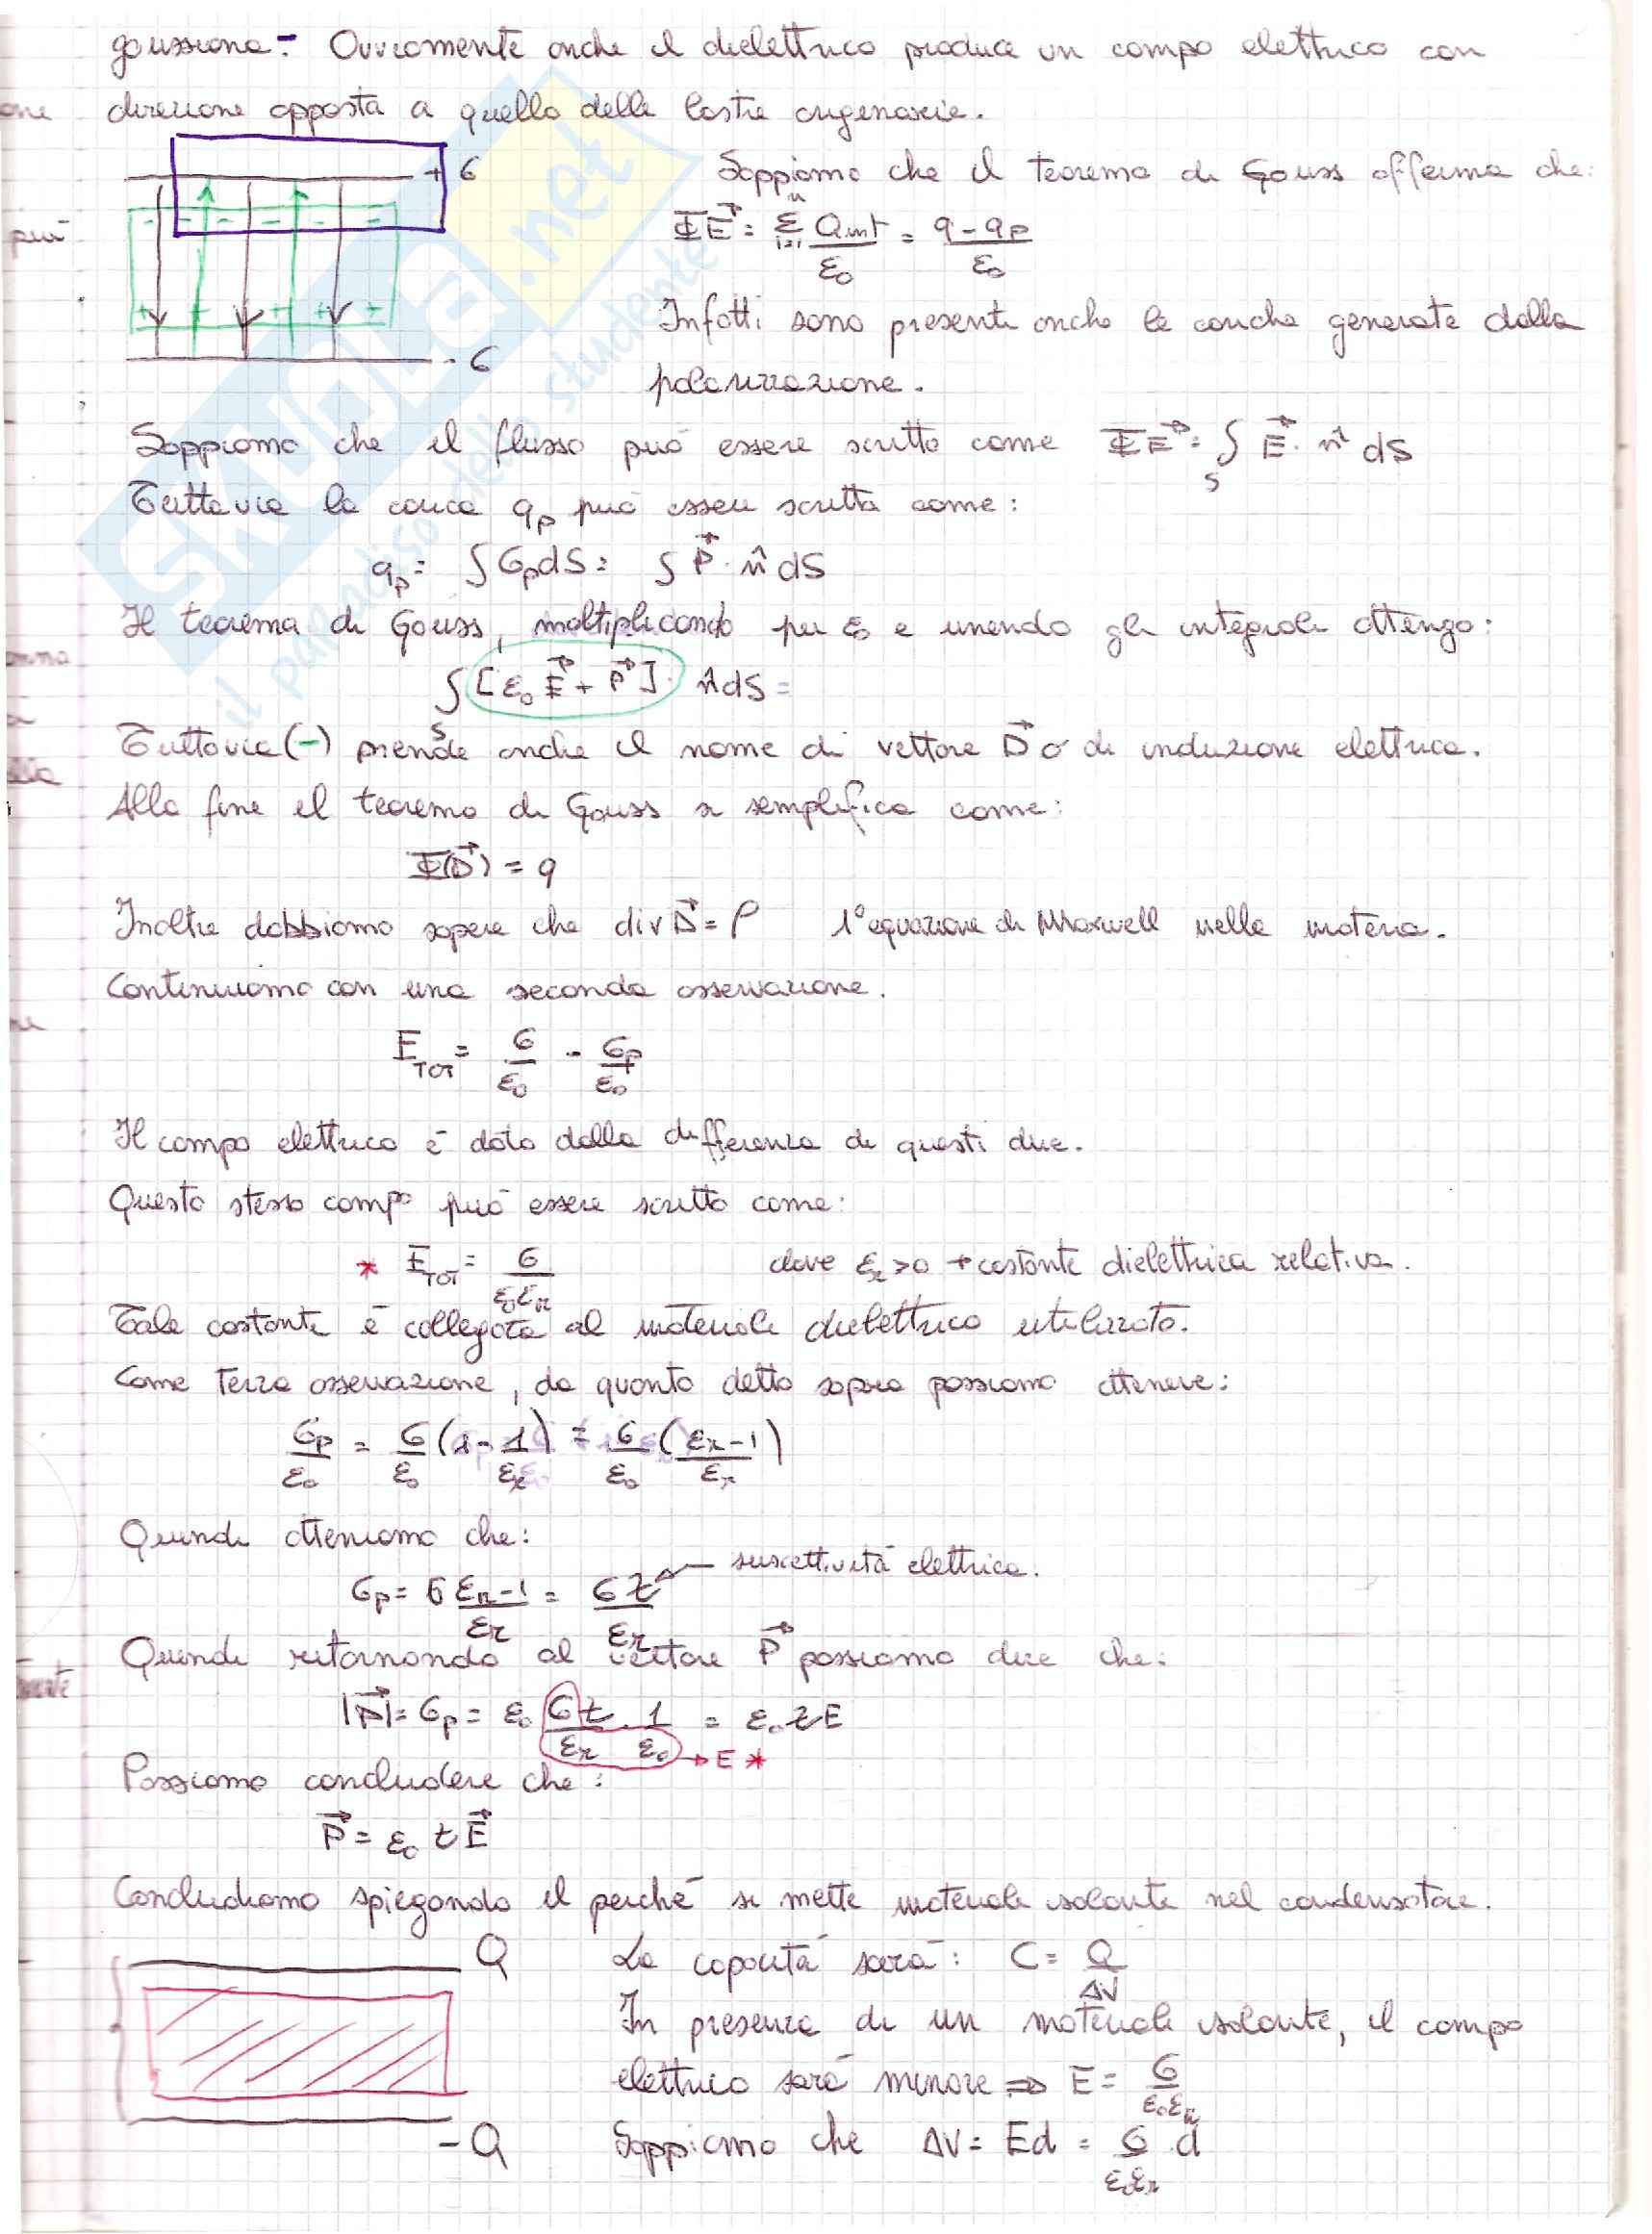 gaussiana - Ovviamente anche il dielettrico produce un campo elettrico con
direzione opposta a quello delle lastre originarie.
+ σ
Sappiamo che il teorema di Gauss afferma che:
Φ E⃗ = Σ Qint/ε₀ = q - qp/ε₀
- σ
Infatti sono presenti anche le cariche generate dalla
polarizzazione.
Sappiamo che il flusso può essere scritto come Φ E⃗ = ∫s E⃗ · n̂ dS
Tuttavia la carica qp può essere scritta come:
qp = ∫ σp dS = ∫ P⃗ · n̂ dS
Il teorema di Gauss, moltiplicando per ε₀ e unendo gli integrali ottengo:
∫s [ε₀ E⃗ + P⃗] · n̂ dS =
Tuttavia (-) prende anche il nome di vettore D⃗ o di induzione elettrica.
Alla fine il teorema di Gauss si semplifica come:
Φ(D⃗) = q
Inoltre dobbiamo sapere che div D⃗ = ρ 1° equazione di Maxwell nella materia.
Continuiamo con una seconda osservazione.
E TOT = σ/ε₀ - σp/ε₀
Il campo elettrico è dato dalla differenza di questi due.
Questo stesso campo può essere scritto come:
* E TOT = σ/ε₀εr dove εr > 0 → costante dielettrica relativa.
Tale costante è collegata al materiale dielettrico utilizzato.
Come terza osservazione, da quanto detto sopra possiamo ottenere:
σp/ε₀ = σ/ε₀ (1 - 1/εr) = σ/ε₀ (εr - 1/εr)
Quindi otteniamo che:
suscettività elettrica.
σp = σ εr - 1/εr = σ χ/εr
Quindi ritornando al vettore P⃗ possiamo dire che:
|P⃗| = σp = ε₀ σχ/εr · 1/ε₀ = ε₀ χ E
→ E *
Possiamo concludere che:
P⃗ = ε₀ χ E⃗
Concludiamo spiegando il perché si mette materiale isolante nel condensatore.
Q
La capacità sarà: C = Q/ΔV
In presenza di un materiale isolante, il campo
elettrico sarà minore ⇒ E = σ/ε₀εr
- Q
Sappiamo che ΔV = Ed = σ/ε₀εr · d
skuola.net
il paradiso dello studente